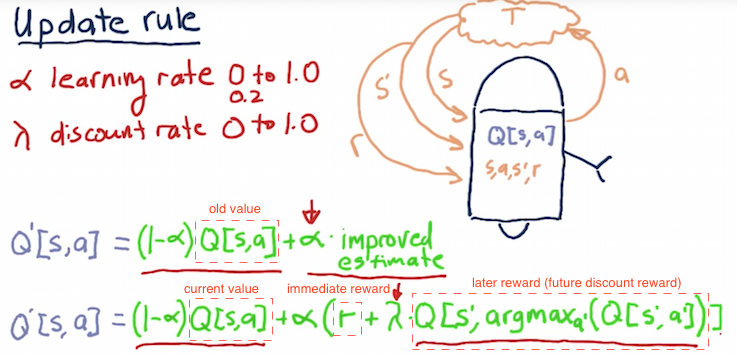 Update rule
α learning rate 0 to 1.0
0.2
λ discount rate 0 to 1.0
T
s'
s
a
r
Q[s,a]
s,a,s',r
old value
Q'[s,a] = (1-α) Q[s,a] + α · improved
estimate
current value immediate reward later reward (future discount reward)
Q'[s,a] = (1-α) Q[s,a] + α (r + λ · Q[s', argmaxₐ'(Q[s',a'])]